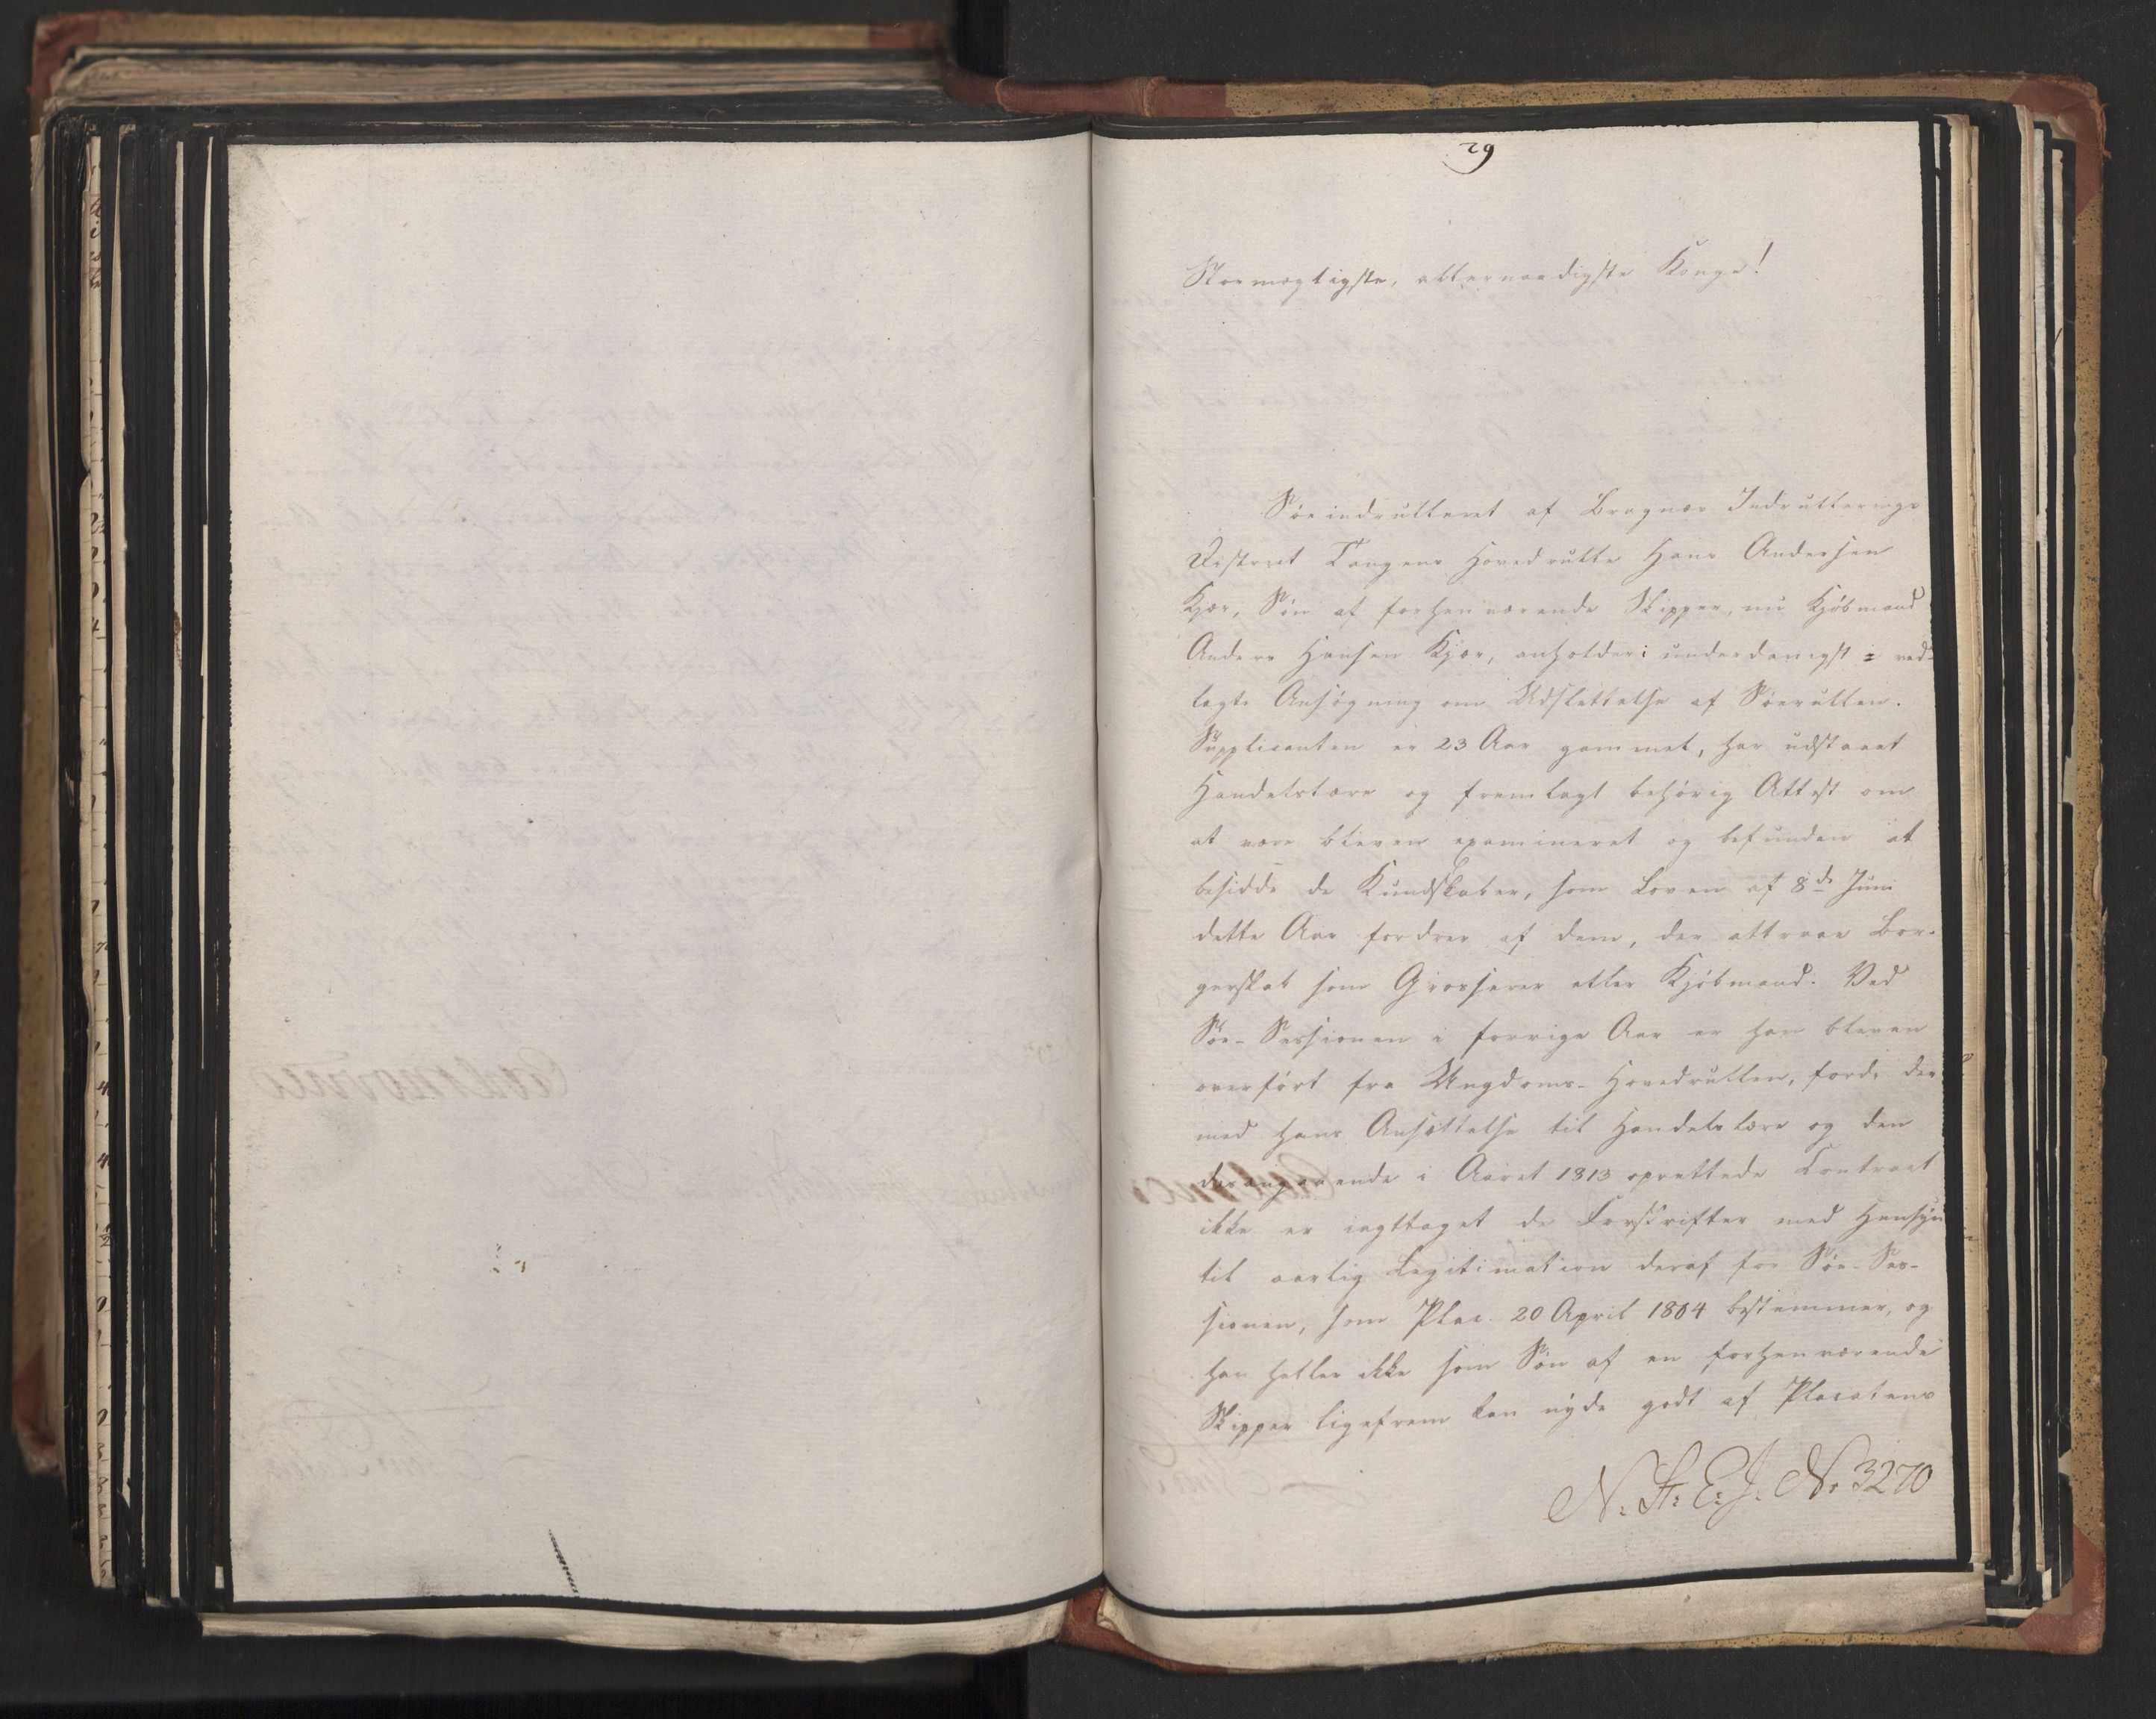 29
Stormægtigste, allernaadigste Konge!
Søeindrulleret af Bragnæs Indrullerings
District Tangens Hovedrulle Hans Andersen
Kjær, Søn af forhenværende Skipper, nu Kjøbmand
Anders Hansen Kjær, anholder underdanigst i ved-
lagte Ansøgning om Udslettelse af Søerullen.
Supplicanten er 23 Aar gammel, har udstaaet
Handelslære og fremlagt behørig Attest om
at være bleven examineret og befunden at
besidde de Kundskaber, som Loven af 8de Juni
dette Aar fordrer af dem, der attraae Bor-
gerskab som Grosserer eller Kjøbmand. Ved
Søe-Sessionen i forrige Aar er han bleven
overført fra Ungdoms-Hovedrullen, fordi der
med hans Ansættelse til Handelslære og den
derangaaende i Aaret 1813 oprettede Contract
ikke er iagttaget de Forskrifter med Hensyn
til aarlig Legitimation deraf for Søe-Ses-
sionen, som Plac. 20 April 1804 bestemmer, og
han heller ikke som Søn af en forhenværende
Skipper ligefrem kan nyde godt af Placatens
N: St: E: J. No 3270